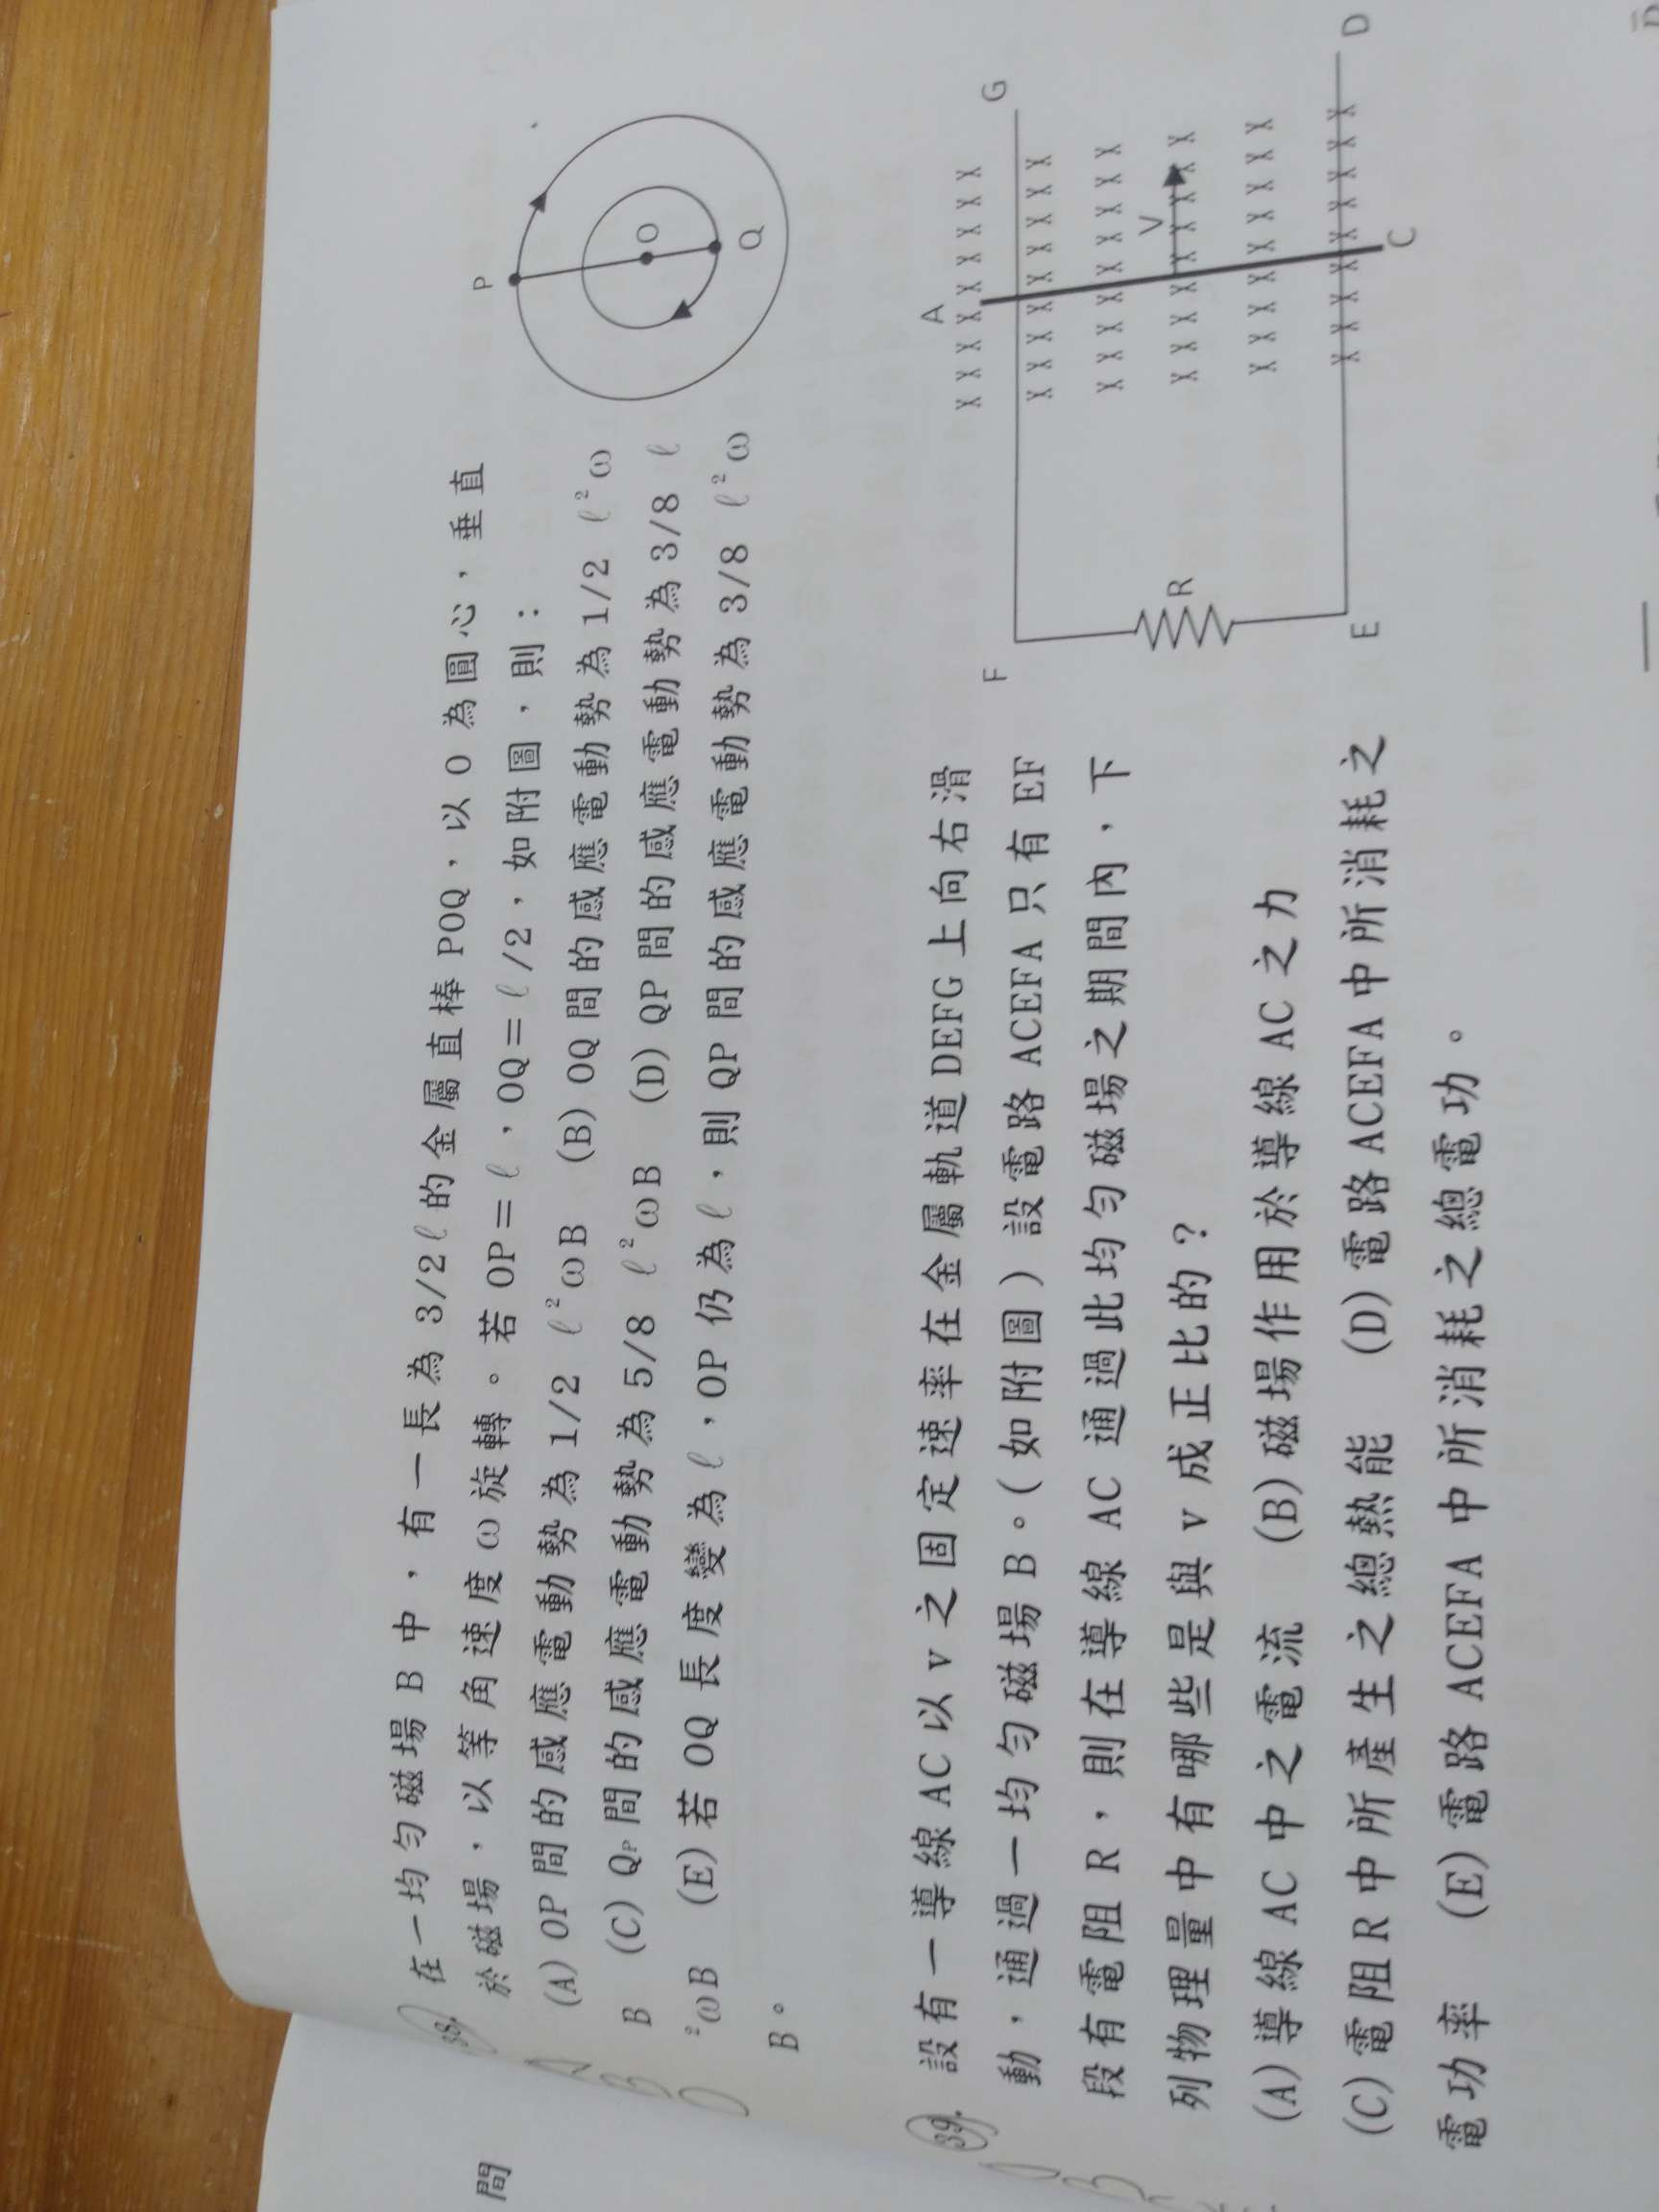 38. 在一均勻磁場B中，有一長為3/2ℓ的金屬直棒POQ，以O為圓心，垂直
於磁場，以等角速度ω旋轉。若OP＝ℓ，OQ＝ℓ/2，如附圖，則：
(A)OP間的感應電動勢為1/2 ℓ²ωB (B)OQ間的感應電動勢為1/2 ℓ²ω
B (C)QP間的感應電動勢為5/8 ℓ²ωB (D)QP間的感應電動勢為3/8 ℓ
²ωB (E)若OQ長度變為ℓ，OP仍為ℓ，則QP間的感應電動勢為3/8 ℓ²ω
B。
P
O
Q
A
B
D
39. 設有一導線AC以v之固定速率在金屬軌道DEFG上向右滑
動，通過一均勻磁場B。(如附圖)設電路ACEFA只有EF
段有電阻R，則在導線AC通過此均勻磁場之期間內，下
列物理量中有哪些是與v成正比的？
(A)導線AC中之電流 (B)磁場作用於導線AC之力
(C)電阻R中所產生之總熱能 (D)電路ACEFA中所消耗之
電功率 (E)電路ACEFA中所消耗之總電功。
F
A
G
R
V
E
C
D
X X X X X X X X
X X X X X X X X
X X X X X X X X
X X X X X X X X
X X X X X X X X
X X X X X X X X
A
B
間